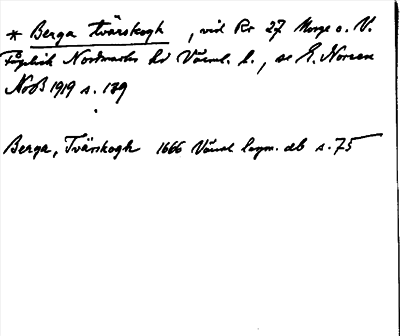 * Berga tvärskogh, vid Rr 27 Norge o. V.
Fågelvik Nordmarks hd Värml. l., se E. Noreen
NoB 1919 s. 139
Berga, Tvärskogh 1666 Värml lagm. db s. 75